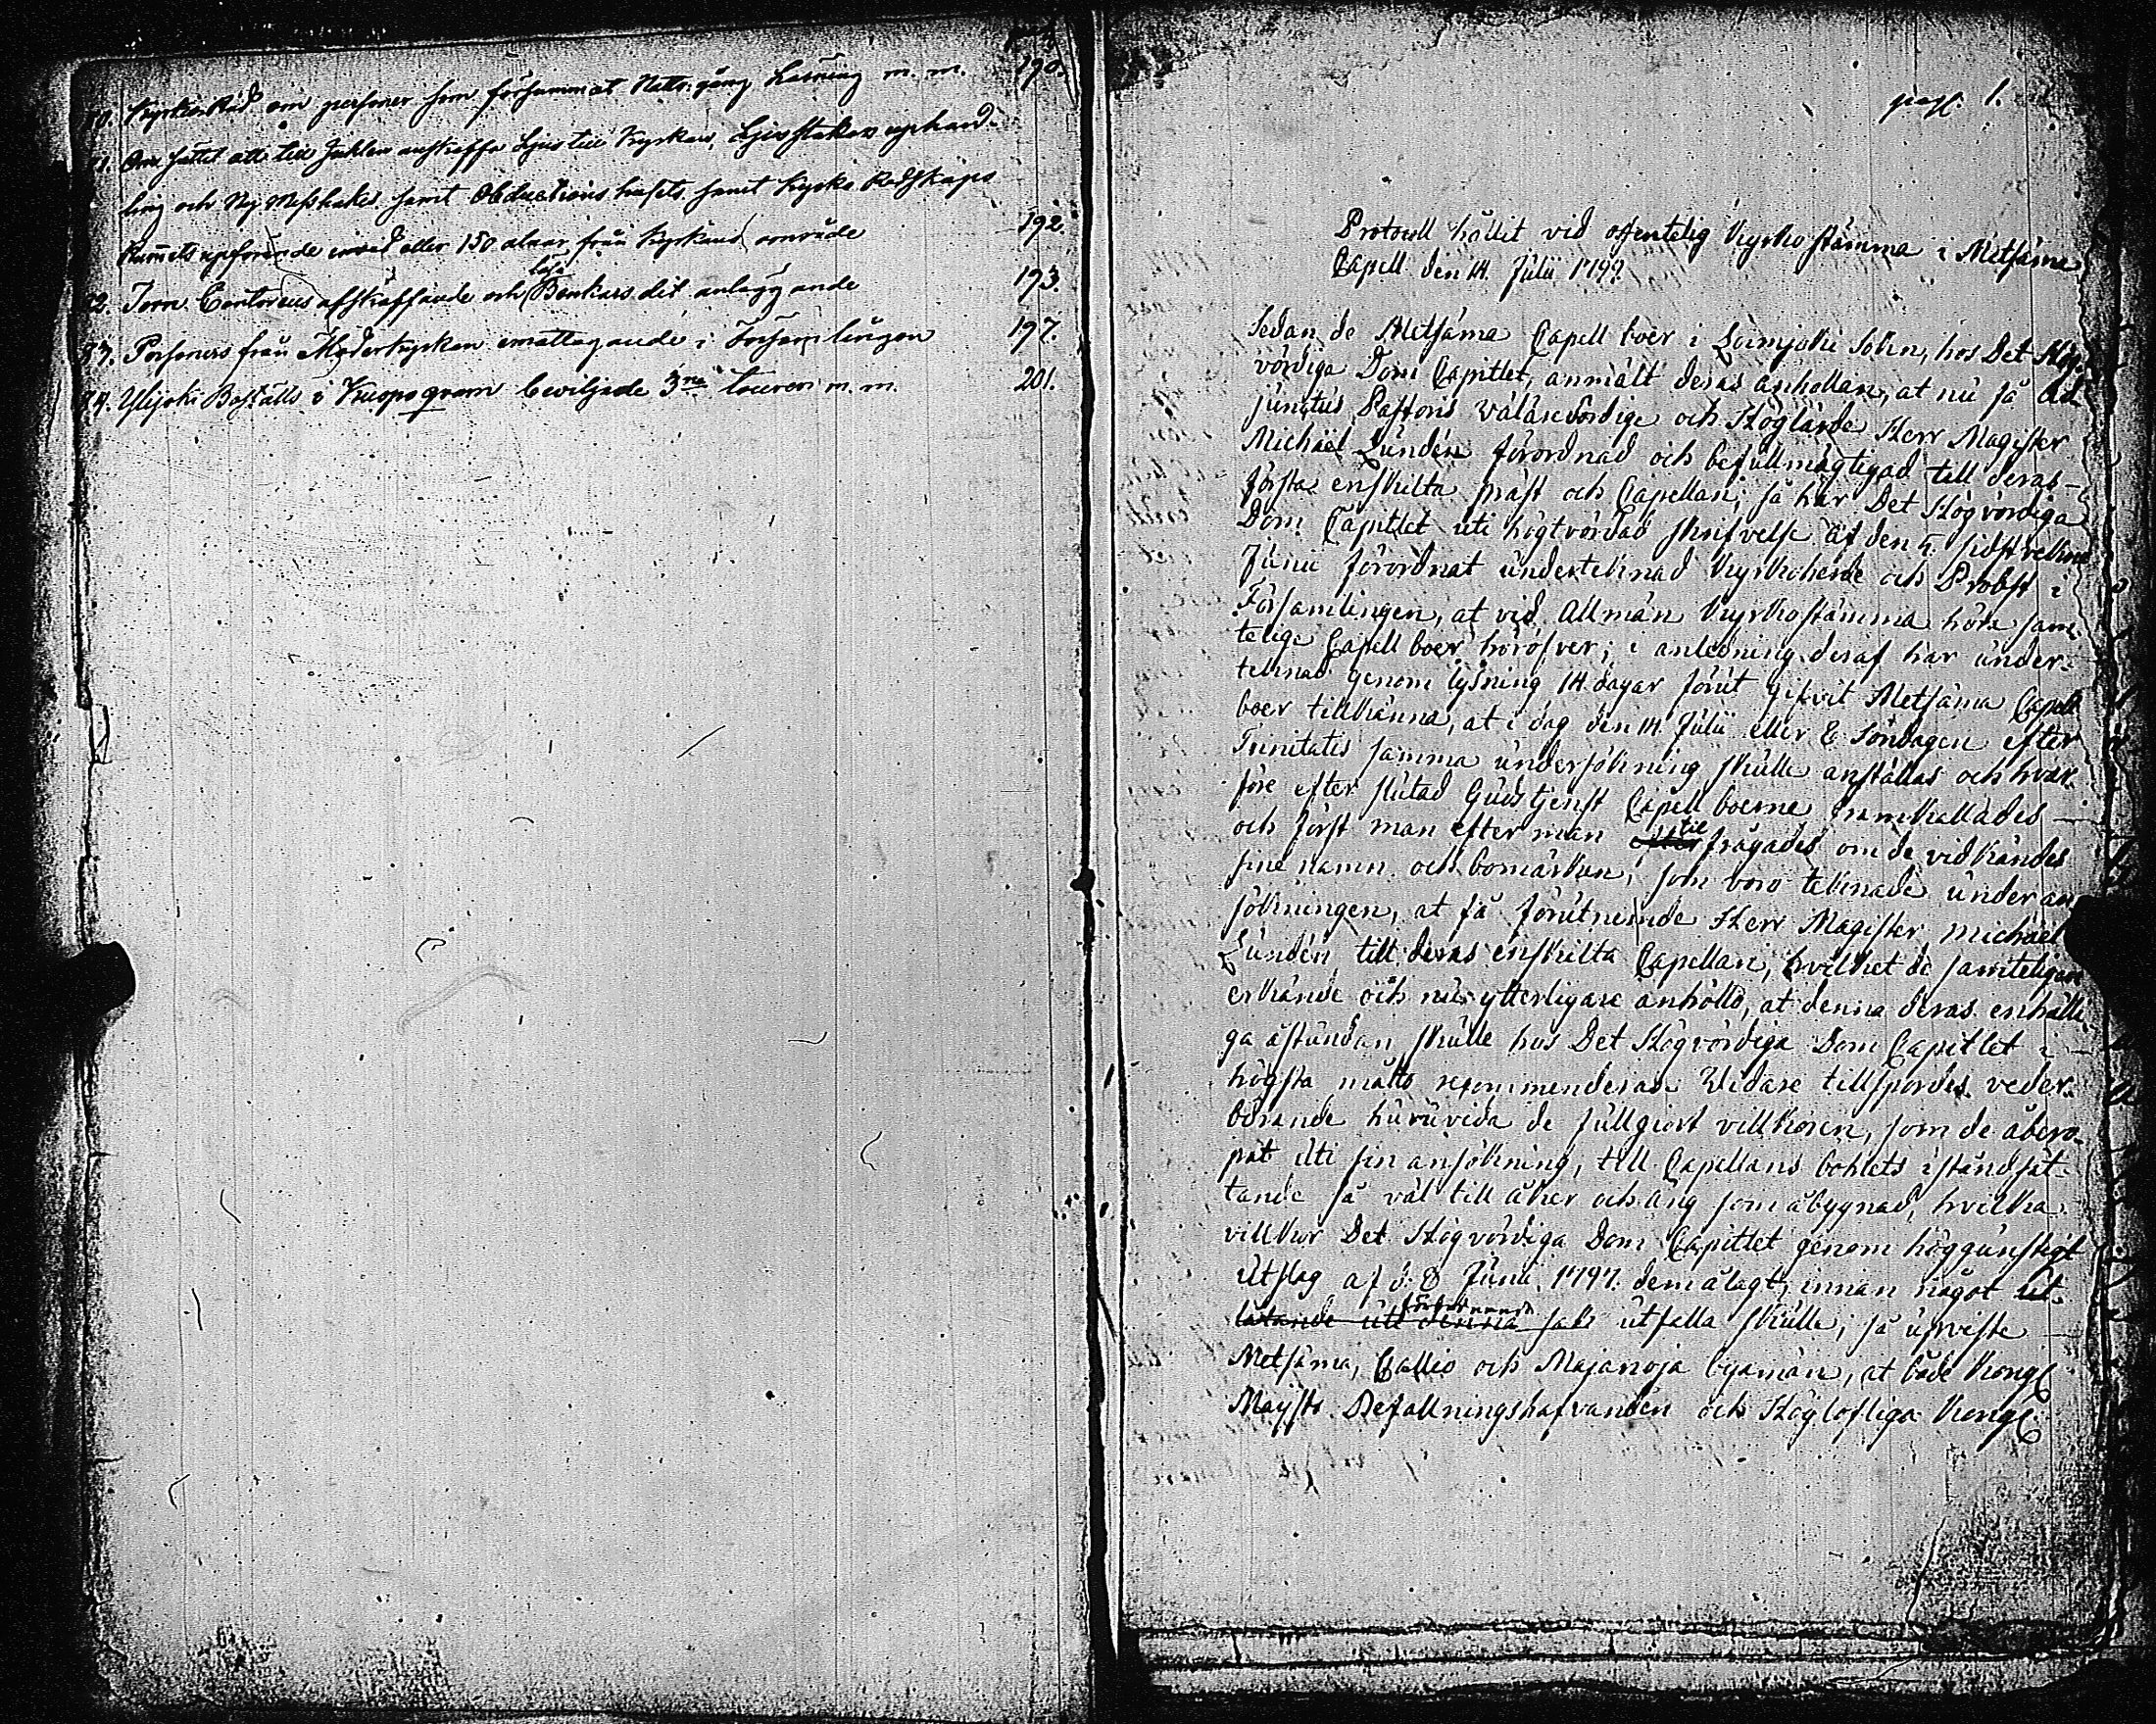 190.
70. Kyrko Råd om personer som försummat Nattv. gång Läsning m. m.
71. Om sättet att till Julen anskaffa Ljus till Kyrkan, Ljusstakars uphand-
ling och Ny Messhakes samt Obductions husets samt Kyrko Redskaps
Rummets upförande invid eller 150 alnar från Kyrkans område 192.
72. Torn Contorens afskaffande och lösa Bänkars dit anläggande 193.
73. Personers från Moderkyrkan emottagande i Församlingen 197.
74. Ylijoki Boställs i Kuopo gram beviljade 3ne tourer m. m. 201.
pag. 1.
Protocoll hållit vid offentelig Kyrkostämma i Metsäma
Capell den 14. Julii 1799.
Sedan de Metsäma Capell boer i Loimjoki Sokn, hos Det Hög-
vördiga Dom Capitlet, anmält deras anhollan, at nu få Ad
junctus Pastoris wälärevördige och Höglärde Herr Magister
Michäel Lundén förordnad och befullmägtigad till deras
första enskilta präst och Capellan; så har Det Högvördiga
Dom Capitlet uti högtvördad skrifvelse af den 5. sidstvekne
Junii förordnat undertecknad Kyrkoherde och Probst i
Församlingen, at vid Allmän Kyrkostämma höra sam-
telige Capell boer häröfver; i anledning deraf har under-
tecknad genom lysning 14 dagar förut gifvit Metsäma Capell
boer tillkänna, at i dag den 14. Julii eller 8 Söndagen efter
Trinitatis samma undersökning skulle anställas och hvar-
före efter slutad Gudstjenst Capell boerne framkallades
och först man efter man tilfrågades om de vidkändes
sine namn och bomärken, som voro teknade under an
sökningen, at få förutnemde Herr Magister Michäel
Lundén till deras enskilta Capellan, hvilket de samteligen
erkände och nu ytterligare anhöllo, at denna deras enhälli-
ga åstundan skulle hos Det Högvördiga Dom Capitlet i
högsta måtto recommenderas. Widare tillspordes veder-
börande huruvida de fullgiort villkoren, som de åbero-
pat uti sin ansökning, till Capellans bohlets i ståndsät-
tande så väl till åker och äng som åbygnad, hvilka
villkor Det Högvördiga Dom Capitlet genom höggunstigt
Utslag af d. 8 Junii 1797. dem ålagt, innan något ut-
låtande uti denna sak utfalla skulle; så upviste
Metsäma, Callio och Majanoja byamän, at både Kongl
Maijsts Befallningshafvanden och Höglofliga Kongl.